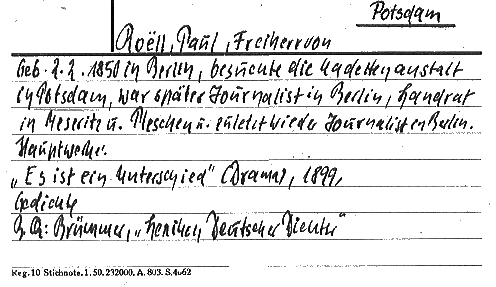 Potsdam
Roëll, Paul, Freiherr von
Geb. 2.2. 1850 in Berlin, besuchte die Kadettenanstalt
in Potsdam, war später Journalist in Berlin, Landrat
in Meseritz u. Pleschen u. zuletzt wieder Journalist in Berlin.
Hauptwerke:
„Es ist ein Unterschied" (Drama), 1899,
Gedichte
Brümmer, „Lexikon Deutscher Dichter"
Reg. 10 Stichnote. 1. 50. 232000. A. 803. S. 4062